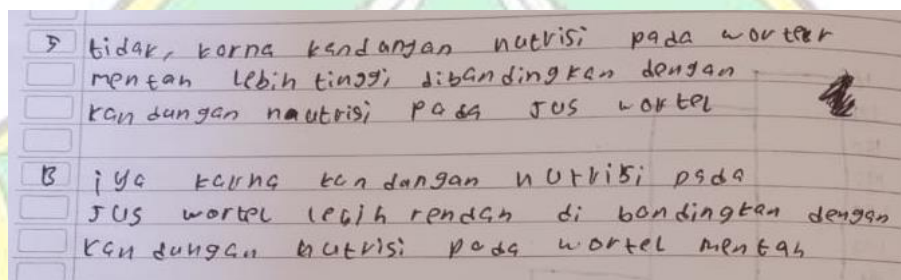 5 tidak, karna kandangan nutrisi pada worteer
mentan lebih tinggi dibandingkan dengan
kandungan nautrisi pada Jus wortel
B iya karna kandangan nutrisi pada
Jus wortel lebih rendah di bandingkan dengan
kandungan nutrisi pada wortel mentah